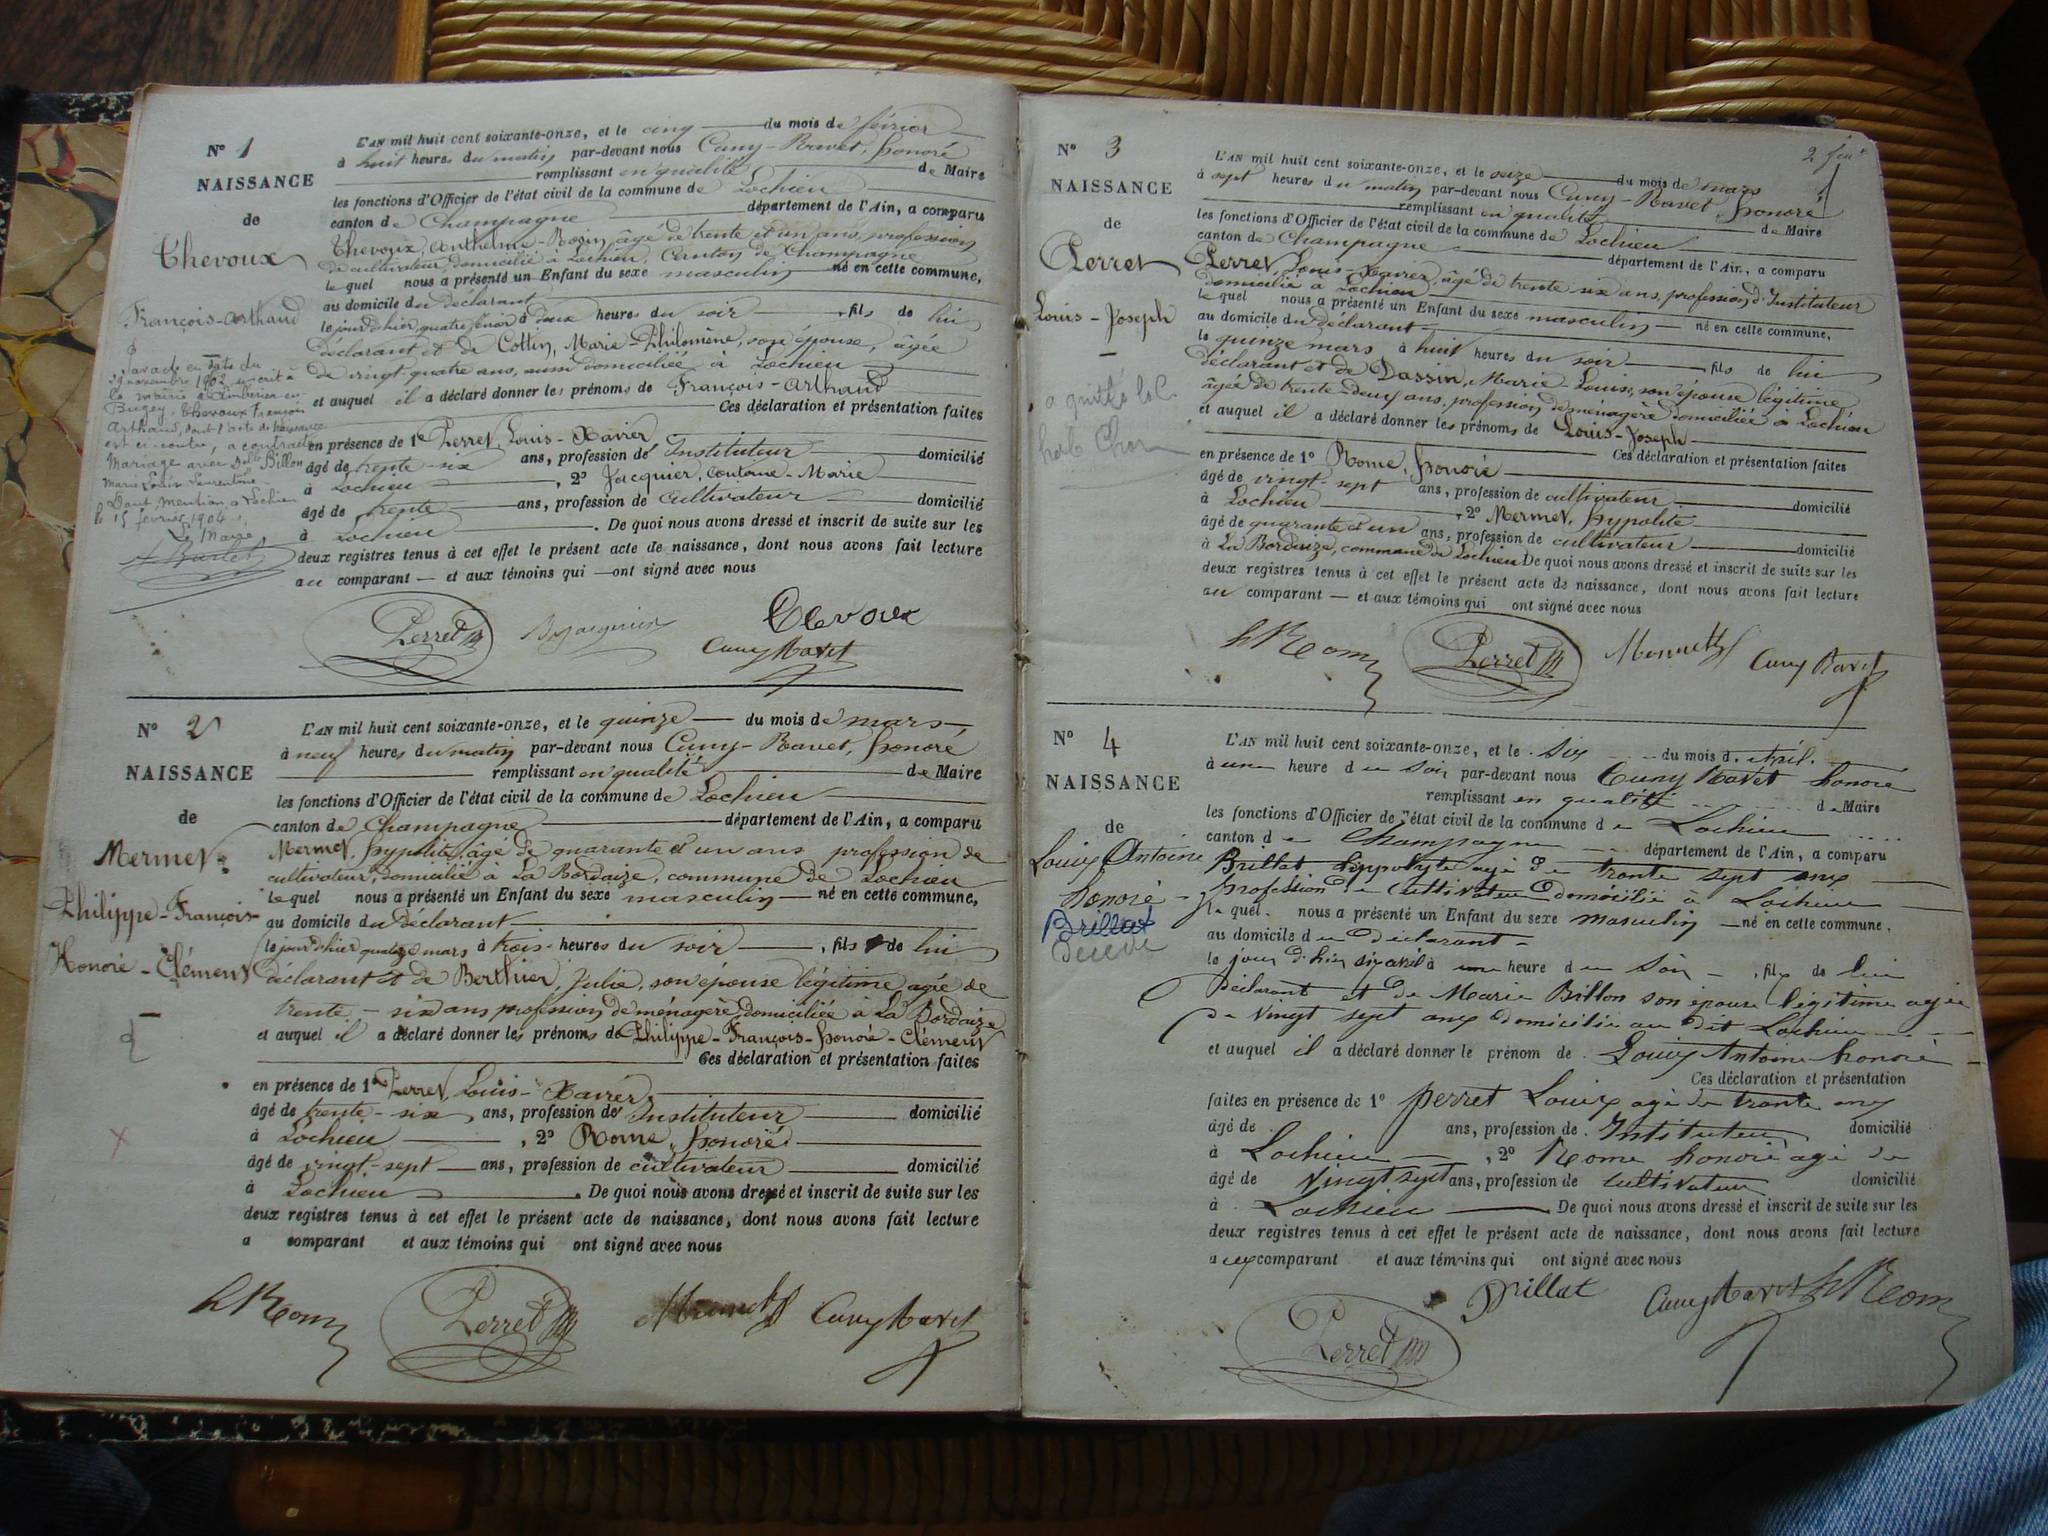 N° 1
NAISSANCE
de
Chevoux
François-Arthaud
Par acte en date du
29 novembre 1902 inscrit à
la mairie d'Ambérieu en
Bugey, Chevoux François
Arthaud, dont l'acte de naissance
est ci-contre, a contracté
Mariage avec Delle Billon
Marie Louise Laurentine
Dont mention à Lochieu
le 15 février 1904
Le Maire,
L'AN mil huit cent soixante-onze, et le cinq du mois de février
à huit heures du matin par-devant nous Cuny-Ravet, honoré
remplissant en qualité de Maire
les fonctions d'Officier de l'état civil de la commune de Lochieu
canton de Champagne département de l'Ain, a comparu
Chevoux, Anthelme-Rosin, âgé de trente et un ans, profession
de cultivateur, domicilié à Lochieu, Canton de Champagne
le quel nous a présenté un Enfant du sexe masculin né en cette commune,
au domicile du déclarant
le jour d'hier, quatre, à deux heures du soir , fils de lui
déclarant et de Cottin, Marie-Philomène, son épouse, âgée
de vingt-quatre ans, aussi domiciliée à Lochieu
et auquel il a déclaré donner les prénoms de François-Arthaud
Ces déclaration et présentation faites
en présence de 1° Perret, Louis-Xavier
âgé de trente-six ans, profession de Instituteur domicilié
à Lochieu , 2° Jacquier, Marie
âgé de trente ans, profession de cultivateur domicilié
à Lochieu . De quoi nous avons dressé et inscrit de suite sur les
deux registres tenus à cet effet le présent acte de naissance, dont nous avons fait lecture
au comparant et aux témoins qui ont signé avec nous
Perret Chevoux
Cuny Ravet
N° 2
NAISSANCE
de
Mermet
Philippe-François-
Honoré-Clément
L'AN mil huit cent soixante-onze, et le quinze du mois de mars
à neuf heures du matin par-devant nous Cuny-Ravet, honoré
remplissant en qualité de Maire
les fonctions d'Officier de l'état civil de la commune de Lochieu
canton de Champagne département de l'Ain, a comparu
Mermet, hypolite, âgé de quarante et un ans profession de
cultivateur, domicilié à La Bordaize, commune de Lochieu
le quel nous a présenté un Enfant du sexe masculin né en cette commune,
au domicile du déclarant
le jour d'hier quatorze mars à trois heures du soir , fils de lui
déclarant et de Berthier, Julie, son épouse légitime âgée de
trente-six ans profession de ménagère domiciliée à La Bordaize
et auquel il a déclaré donner les prénoms de Philippe-François-honoré-Clément
Ces déclaration et présentation faites
en présence de 1° Perret, Louis-Xavier
âgé de trente-six ans, profession de Instituteur domicilié
à Lochieu , 2° Rome, honoré
âgé de vingt-sept ans, profession de cultivateur domicilié
à Lochieu . De quoi nous avons dressé et inscrit de suite sur les
deux registres tenus à cet effet le présent acte de naissance, dont nous avons fait lecture
a comparant et aux témoins qui ont signé avec nous
h Rome Perret Mermet Cuny Ravet
N° 3
NAISSANCE
de
Perret
Louis-Joseph
L'AN mil huit cent soixante-onze, et le seize du mois de mars
à sept heures du matin par-devant nous Cuny-Ravet, honoré
remplissant en qualité de Maire
les fonctions d'Officier de l'état civil de la commune de Lochieu
canton de Champagne département de l'Ain, a comparu
Perret, Louis-Xavier, âgé de trente-six ans, profession d'Instituteur
domicilié à Lochieu
le quel nous a présenté un Enfant du sexe masculin né en cette commune,
au domicile du déclarant
le quinze mars à huit heures du soir fils de lui
déclarant et de Dassin, Marie-Louise, son épouse légitime
âgée de trente-deux ans, profession de ménagère domiciliée à Lochieu
et auquel il a déclaré donner les prénoms de Louis-Joseph
Ces déclaration et présentation faites
en présence de 1° Rome, honoré
âgé de vingt-sept ans, profession de cultivateur domicilié
à Lochieu , 2° Mermet, hypolite
âgé de quarante et un ans, profession de cultivateur domicilié
à La Bordaize, commune de Lochieu De quoi nous avons dressé et inscrit de suite sur les
deux registres tenus à cet effet le présent acte de naissance, dont nous avons fait lecture
au comparant et aux témoins qui ont signé avec nous
h Rome Perret Mermet Cuny Ravet
N° 4
NAISSANCE
de
Louis Antoine
honoré
Brillat
L'AN mil huit cent soixante-onze, et le six du mois d'avril
à une heure du soir par-devant nous Cuny Ravet honoré
remplissant en qualité de Maire
les fonctions d'Officier de l'état civil de la commune de Lochieu
canton de Champagne département de l'Ain, a comparu
Brillat hyppolyte agé de trente sept ans
profession de cultivateur domicilié à Lochieu
le quel nous a présenté un Enfant du sexe masculin né en cette commune,
au domicile du déclarant
le jour d'hier à une heure du soir , fils de lui
déclarant et de Marie Billon son épouse légitime agée
de vingt sept ans domiciliée au dit Lochieu
et auquel il a déclaré donner le prénom de Louis Antoine honoré
Ces déclaration et présentation
faites en présence de 1° perret Louis agé de trente ans
âgé de ans, profession de Instituteur domicilié
à Lochieu , 2° Rome honoré agé de
âgé de vingt sept ans, profession de cultivateur domicilié
à Lochieu De quoi nous avons dressé et inscrit de suite sur les
deux registres tenus à cet effet le présent acte de naissance, dont nous avons fait lecture
aux comparant et aux témoins qui ont signé avec nous
Brillat Cuny Ravet h Rome
Perret